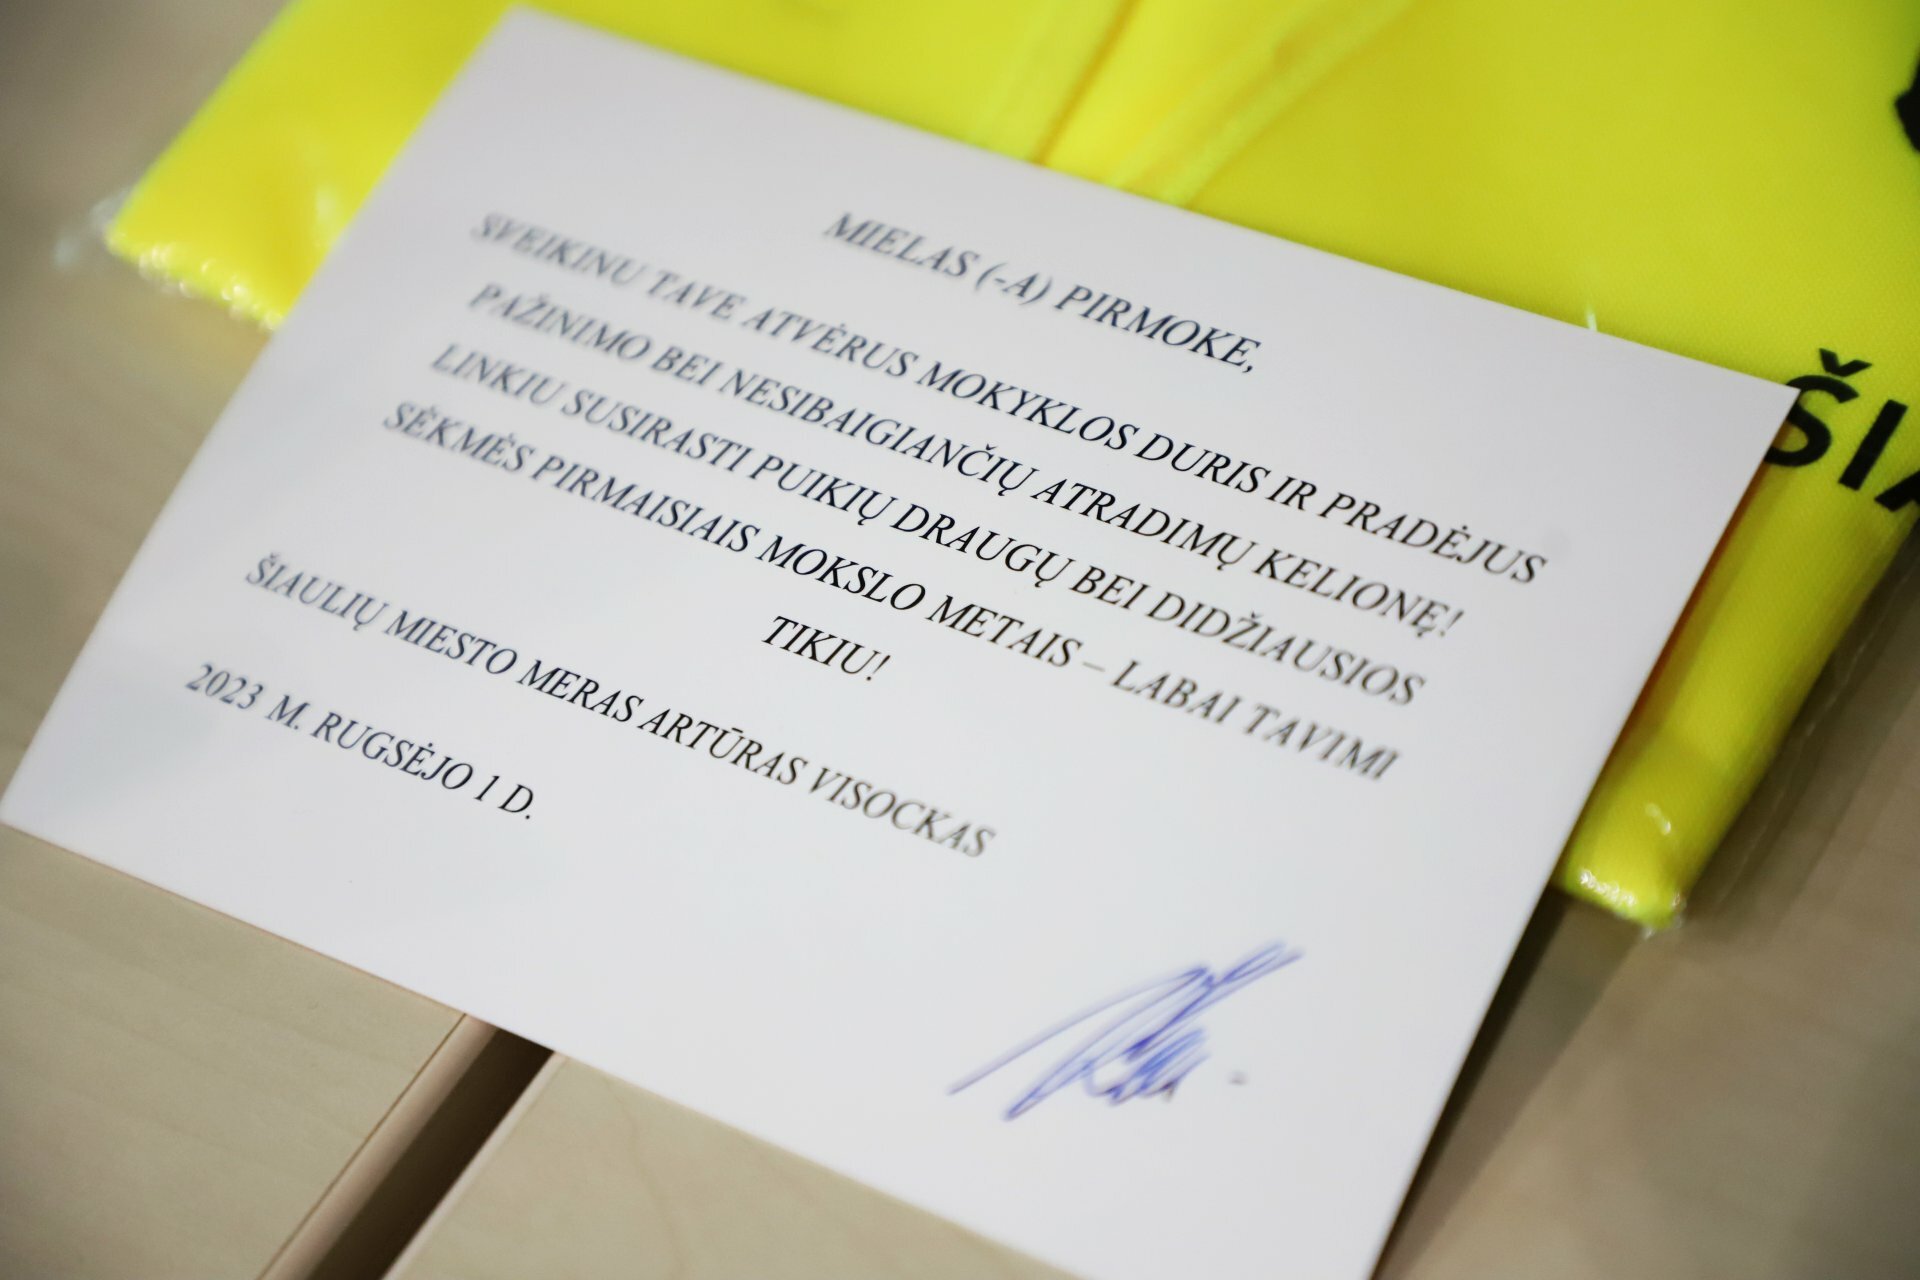 MIELAS (-A) PIRMOKE,
SVEIKINU TAVE ATVĖRUS MOKYKLOS DURIS IR PRADĖJUS
PAŽINIMO BEI NESIBAIGIANČIŲ ATRADIMŲ KELIONĘ!
LINKIU SUSIRASTI PUIKIŲ DRAUGŲ BEI DIDŽIAUSIOS
SĖKMĖS PIRMAISIAIS MOKSLO METAIS – LABAI TAVIMI
TIKIU!
ŠIAULIŲ MIESTO MERAS ARTŪRAS VISOCKAS
2023 M. RUGSĖJO 1 D.
ŠIA